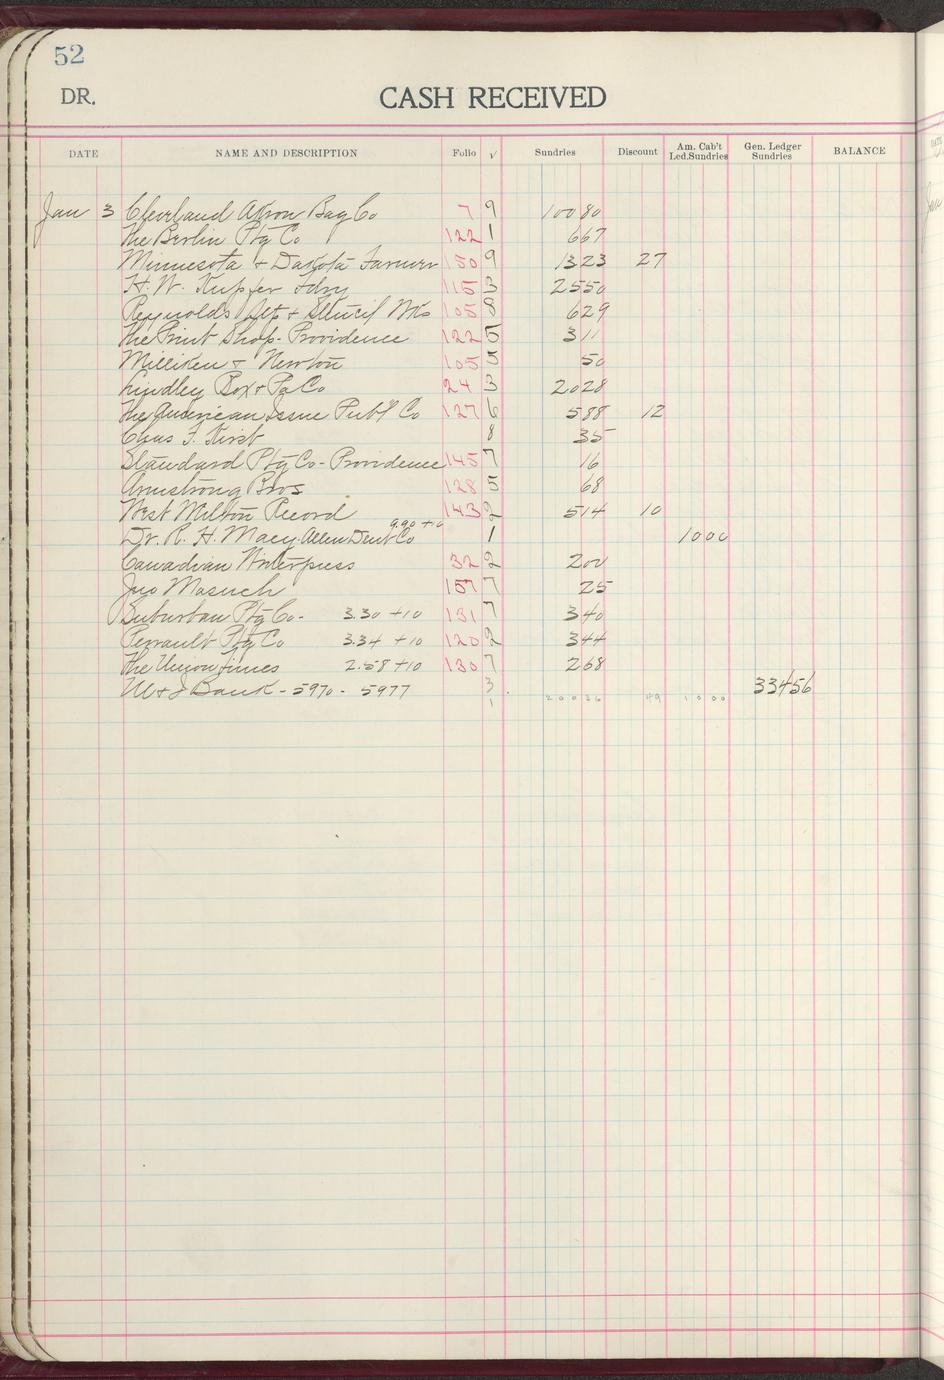 52
DR. CASH RECEIVED
DATE NAME AND DESCRIPTION Folio √ Sundries Discount Am. Cab't Led. Sundries Gen. Ledger Sundries BALANCE
Jan 3 Cleveland Akron Bag Co 7 9 100 80
The Berlin Ptg Co 122 1 6 67
Minnesota & Dakota Farmer 80 9 13 23 27
H. W. Kupfer Fdry 115 3 25 50
Reynolds & Stencil Wks 105 8 6 29
The Print Shop - Providence 122 5 3 11
Milliken & Newton 105 5 50
Lindley Box & Pa Co 24 3 20 28
The American Issue Publ Co 127 6 5 88 12
Chas F. 8 35
Standard Ptg Co - Providence 145 7 16
Armstrong Bros 128 5 68
West Milton Record 143 2 5 14 10
9.90 + 10
Dr. R. H. Macy - Allen Dent Co 1 10 00
Canadian 32 2 2 00
Jno Masuch 157 7 25
Suburban Ptg Co - 3.30 + 10 131 7 3 40
Perrault Ptg Co 3.34 + 10 120 2 3 44
The Union Times 2.58 + 10 130 7 2 68
M & J Bank - 5970 - 5977 3 334 56
1 200 36 49 10 00